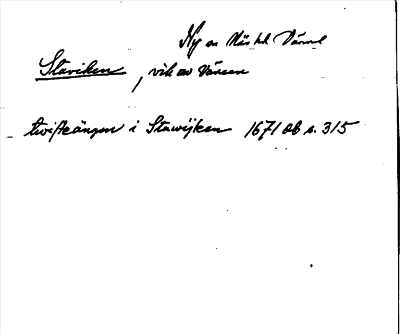 Ny sn Näs hd Värml
Staviken, vik av Vänern
twisteängen i Stawijken 1671 ob s. 315